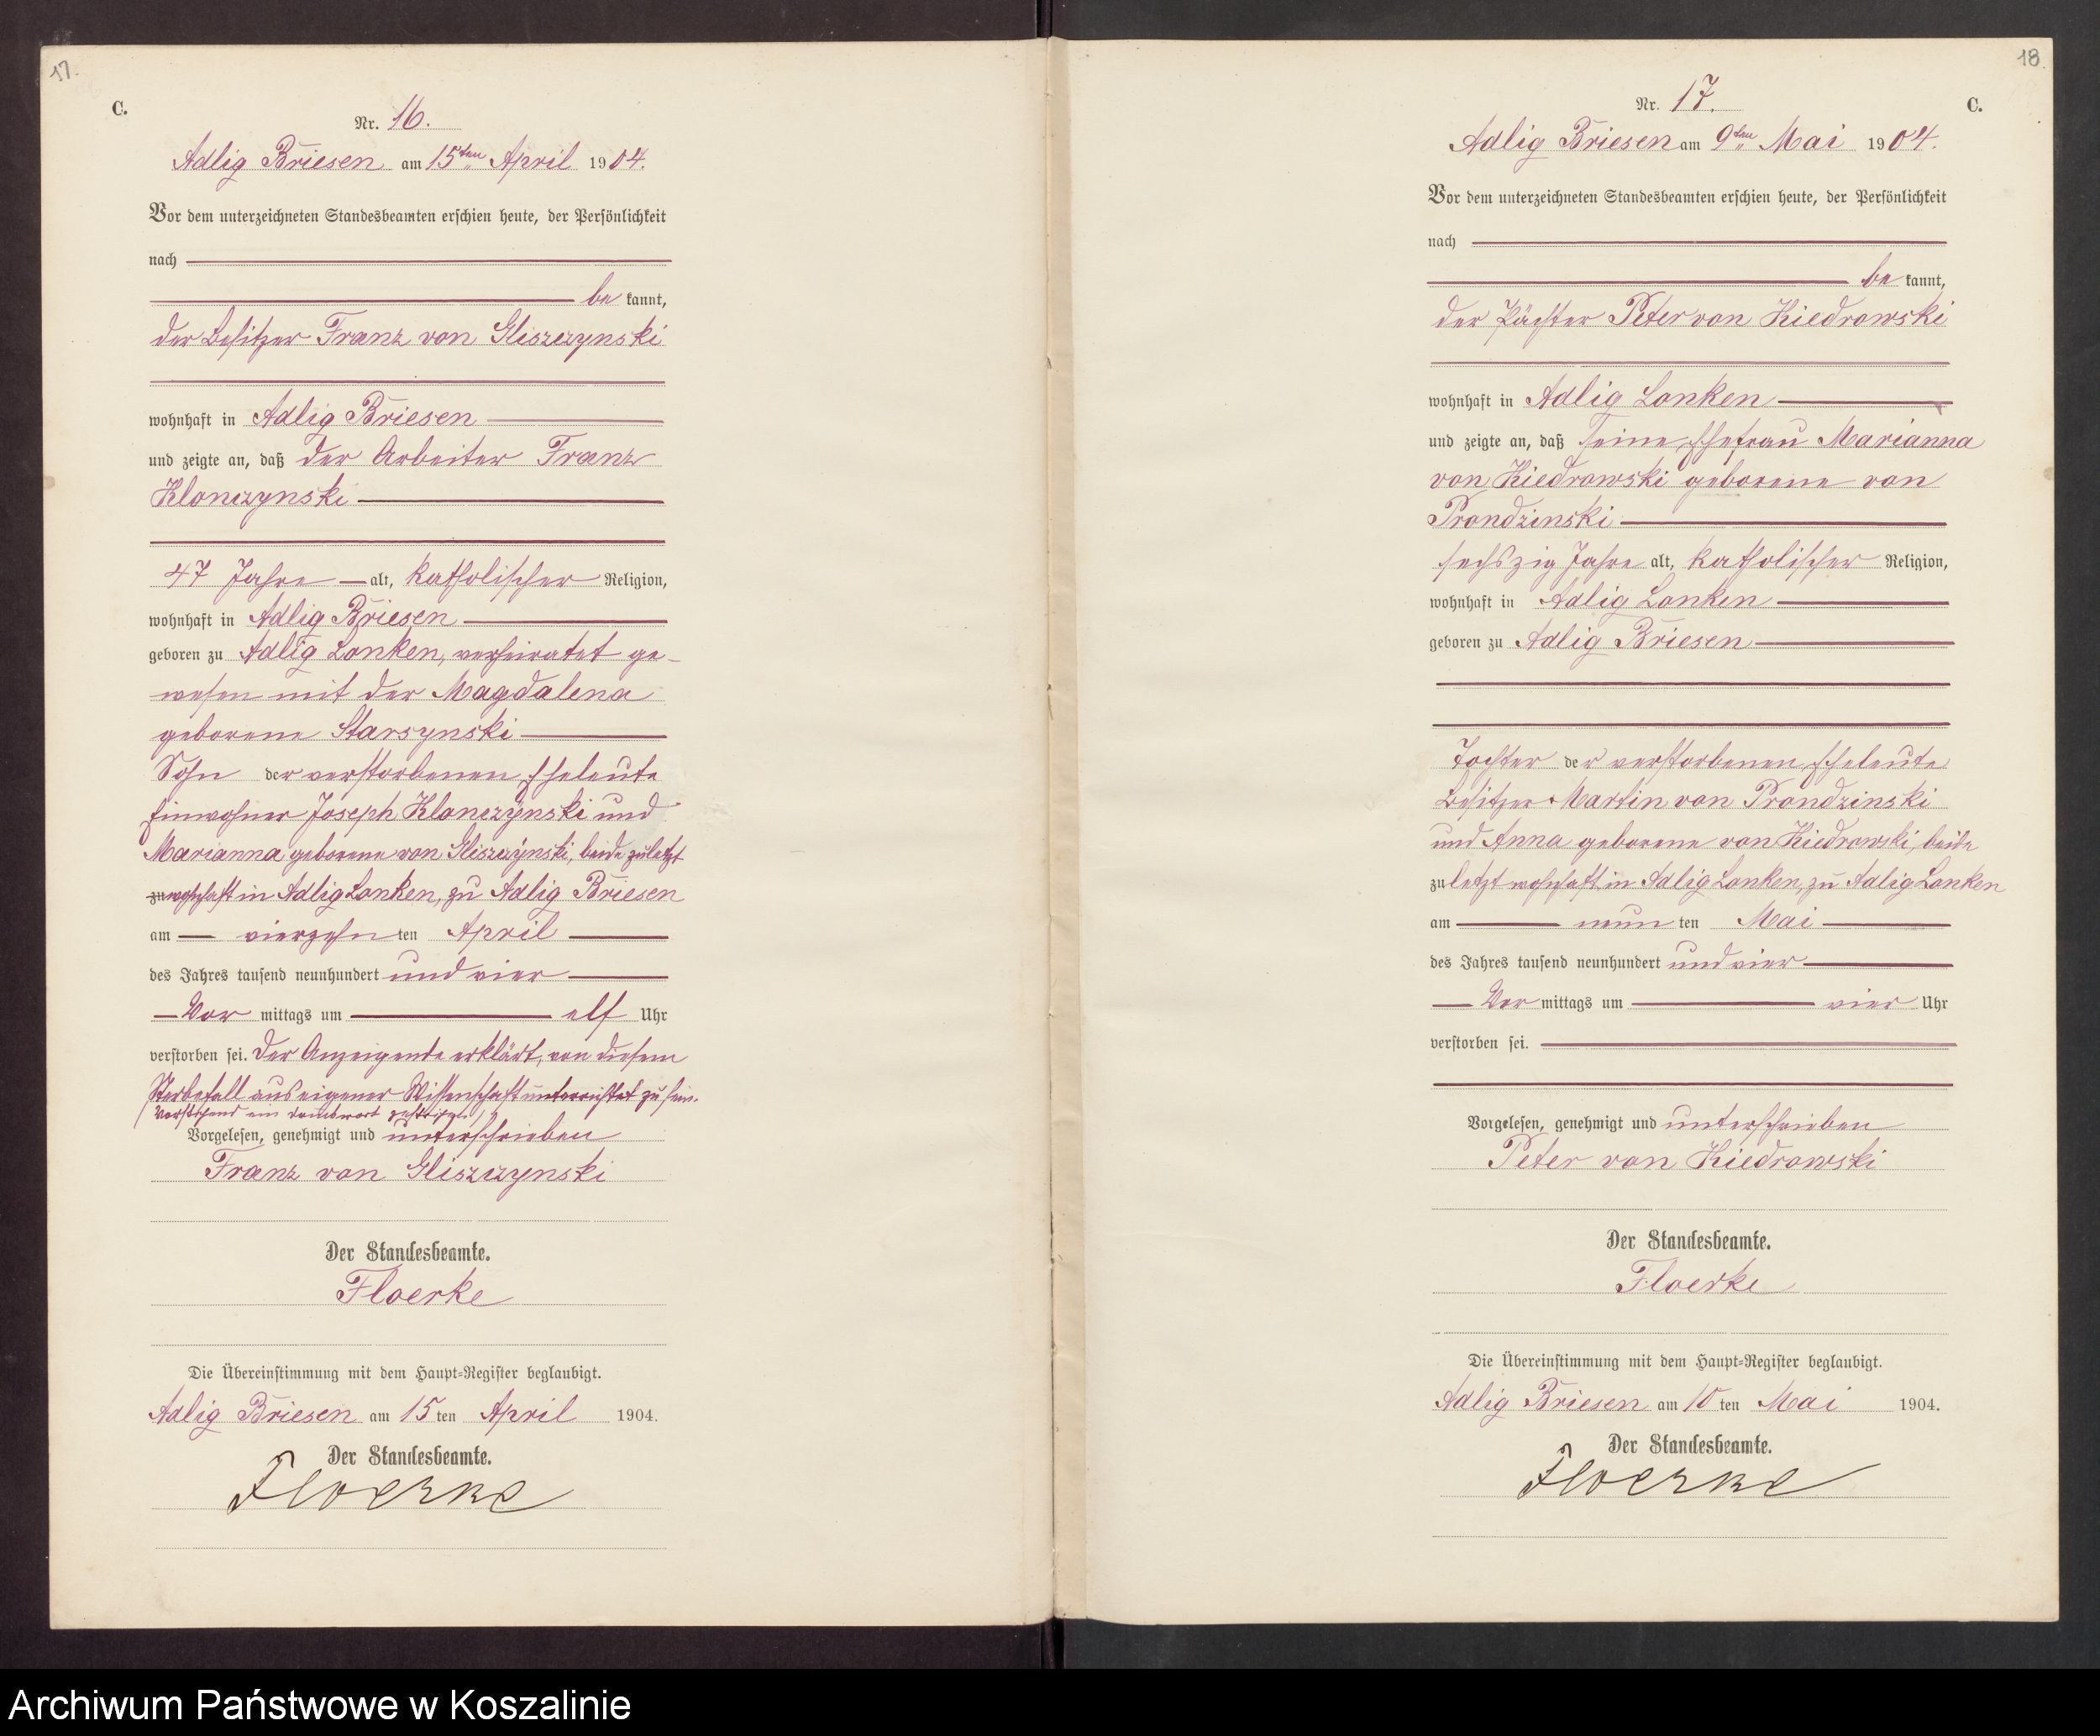 17.
C.
Nr. 16.
Adlig Briesen am 15ten April 1904.
Vor dem unterzeichneten Standesbeamten erschien heute, der Persönlichkeit
nach
be kannt,
der Besitzer Franz von Gliszczynski
wohnhaft in Adlig Briesen
und zeigte an, daß der Arbeiter Franz
Klonczynski
47 Jahre alt, katholischer Religion,
wohnhaft in Adlig Briesen
geboren zu Adlig Lonken, verheiratet ge-
wesen mit der Magdalena
geborene Starsynski
Sohn der verstorbenen Eheleute
Einwohner Joseph Klonczynski und
Marianna geborene von Gliszczynski, beide zuletzt
zu wohnhaft in Adlig Lonken, zu Adlig Briesen
am vierzehnten April
des Jahres tausend neunhundert und vier
Vor mittags um elf Uhr
verstorben sei. Der Anzeigende erklärt, von diesem
Sterbefall aus eigener Wissenschaft unterrichtet zu sein.
Vorstehend ein Druckwort gestrichen
Vorgelesen, genehmigt und unterschrieben
Franz von Gliszczynski
Der Standesbeamte.
Floerke
Die Übereinstimmung mit dem Haupt-Register beglaubigt.
Adlig Briesen am 15 ten April 1904.
Der Standesbeamte.
Floerke
18.
C.
Nr. 17.
Adlig Briesen am 9ten Mai 1904.
Vor dem unterzeichneten Standesbeamten erschien heute, der Persönlichkeit
nach
be kannt,
der Pächter Peter von Kiedrowski
wohnhaft in Adlig Lonken
und zeigte an, daß seine Ehefrau Marianna
von Kiedrowski geborene von
Prondzinski
sechszig Jahre alt, katholischer Religion,
wohnhaft in Adlig Lonken
geboren zu Adlig Briesen
Tochter der verstorbenen Eheleute
Besitzer Martin von Prondzinski
und Anna geborene von Kiedrowski, beide
zuletzt wohnhaft in Adlig Lonken, zu Adlig Lonken
am neun ten Mai
des Jahres tausend neunhundert und vier
Vor mittags um vier Uhr
verstorben sei.
Vorgelesen, genehmigt und unterschrieben
Peter von Kiedrowski
Der Standesbeamte.
Floerke
Die Übereinstimmung mit dem Haupt-Register beglaubigt.
Adlig Briesen am 10 ten Mai 1904.
Der Standesbeamte.
Floerke
Archiwum Państwowe w Koszalinie